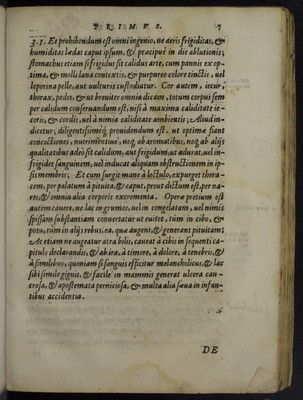 P R I M V S. 7
3.1. Et prohibendum est omni ingenio, ne aeris frigiditas, &
humiditas laedat caput ipsum, & praecipuè in die ablutionis;
stomachus etiam si frigidus sit calidus arte, cum pannis ex op-
tima, & molli lana contextis, & purpureo colore tinctis, uel
leporina pelle, aut uulturis custodiatur. Cor autem, iecur,
thorax, pedes, & ut breuiter omnia dicam, totum corpus sem
per calidum conseruandum est, nisi à maxima caliditate ie-
coris, & cordis, uel à nimia caliditate ambientis; Aliud in-
dicetur; diligentissimeq́; prouidendum est, ut optimae fiant
concoctiones, nutrimentumue, neq; ab aromatibus, neq; ab alijs
qualitatibus adeò sit calidum, aut frigidum, ut adurat, uel in-
frigidet sanguinem, uel inducat aliquam obstructionem in ip-
sis membris; Et cum surgit mane à lectulo, expurget thora-
cem, per palatum à pituita, & caput, prout dictum est, per na-
res, & omnia alia corporis excrementa. Opere pretium est
autem cauere, ne lac in grumos, uel in congelatum, uel nimis
spissam substantiam conuertatur ut euitet, tùm in cibo, &
potu, tùm in alijs rebus, ea, quae augent, & generant pituitam;
Ac etiam ne augeatur atra bilis, caueat à cibis in sequenti ca-
pitulo declarandis, & ab ira, à timore, à dolore, à tenebris, &
à similibus, quoniam si sanguis efficitur melancholicus, & lac
sibi simile gignit, & facilè in mammis generat ulcera can-
crosa, & apostemata perniciosa, & multa alia saeua in infan-
tibus accidentia.
DE